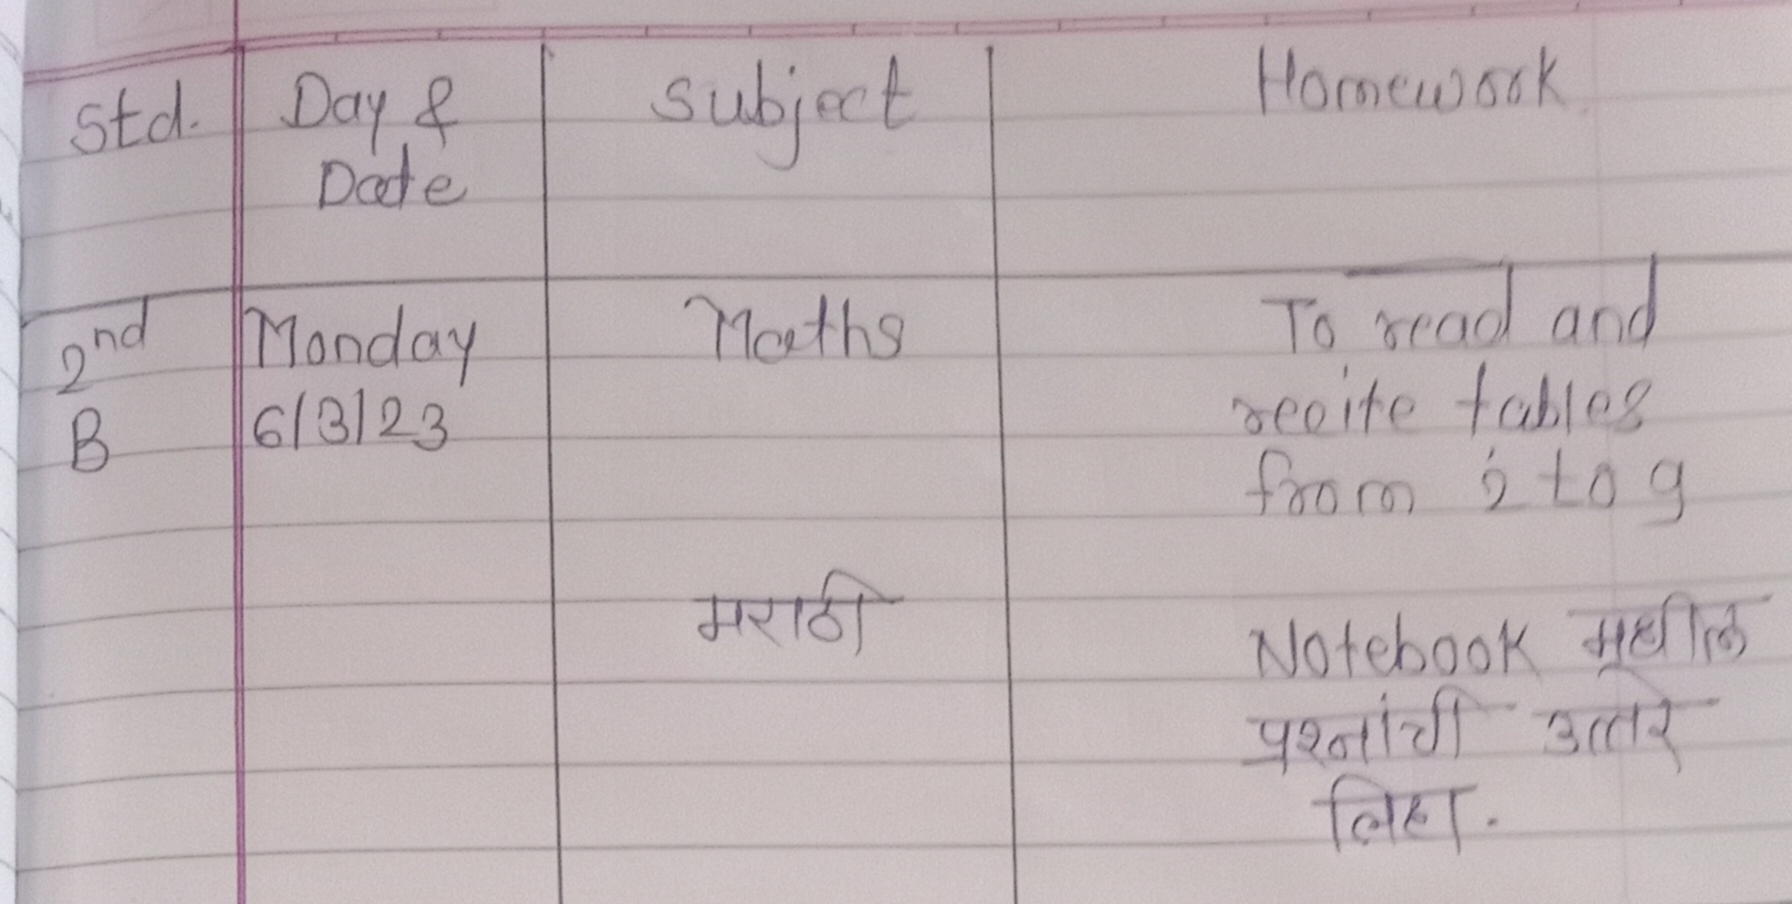 Std. Day & Subject Homework
Date
2nd Monday Maths To read and
B 6/3/23 recite tables
from 2 to 9
मराठी Notebook मधील
प्रश्नांची उत्तरे
लिहा.